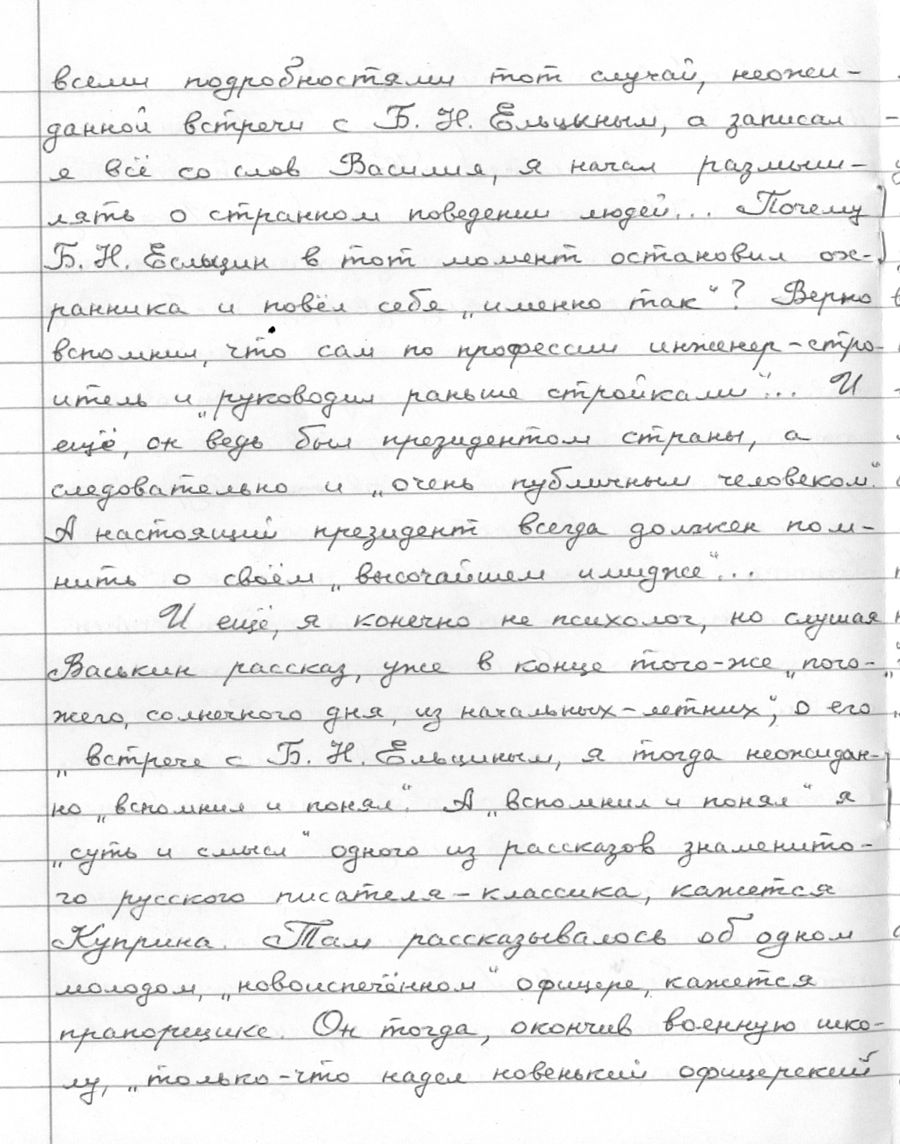 всеми подробностями тот случай, неожи-
данной встречи с Б. Н. Ельцыным, а записал
я всё со слов Василия, я начал размыш-
лять о странном поведении людей... Почему
Б. Н. Ельцин в тот момент остановил ох-
ранника и повёл себя „именно так“? Верно
вспомнил, что сам по профессии инженер-стро-
итель и „руководил раньше стройками“... И
ещё, он ведь был президентом страны, а
следовательно и „очень публичным человеком“.
А настоящий президент всегда должен пом-
нить о своём „высочайшем имидже“...
И ещё, я конечно не психолог, но слушая
Васькин рассказ, уже в конце того-же „пого-
жего, солнечного дня, из начальных-летних“, о его
„встрече с Б. Н. Ельциным, я тогда неожидан-
но „вспомнил и понял“. А „вспомнил и понял“ я
„суть и смысл“ одного из рассказов знаменито-
го русского писателя-классика, кажется
Куприна. Там рассказывалось об одном
молодом, „новоиспечённом“ офицере, кажется
прапорщике. Он тогда, окончив военную шко-
лу, „только-что надел новенький офицерский